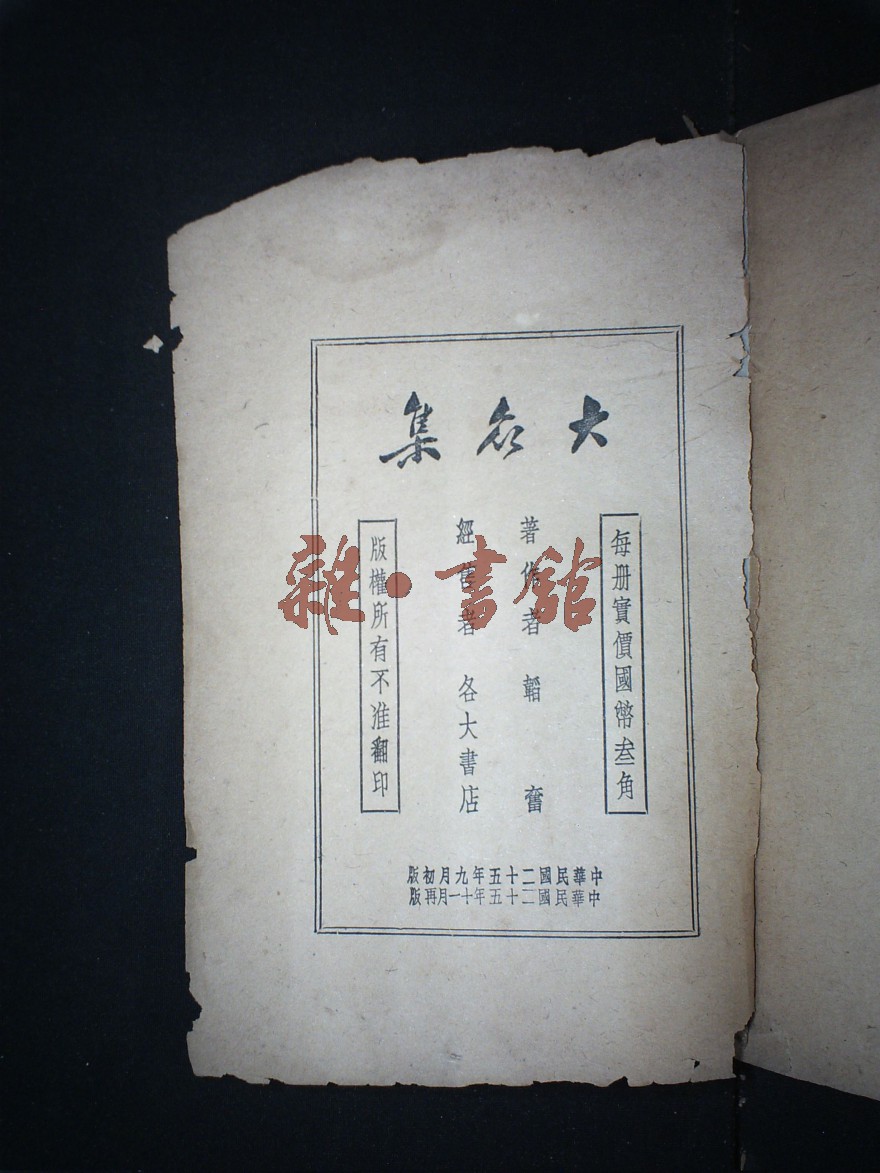 大众集
每册實價國幣叁角
著作者 韜奮
經售者 各大書店
版權所有不准翻印
中華民國二十五年九月初版
中華民國二十五年十一月再版
雜·書館